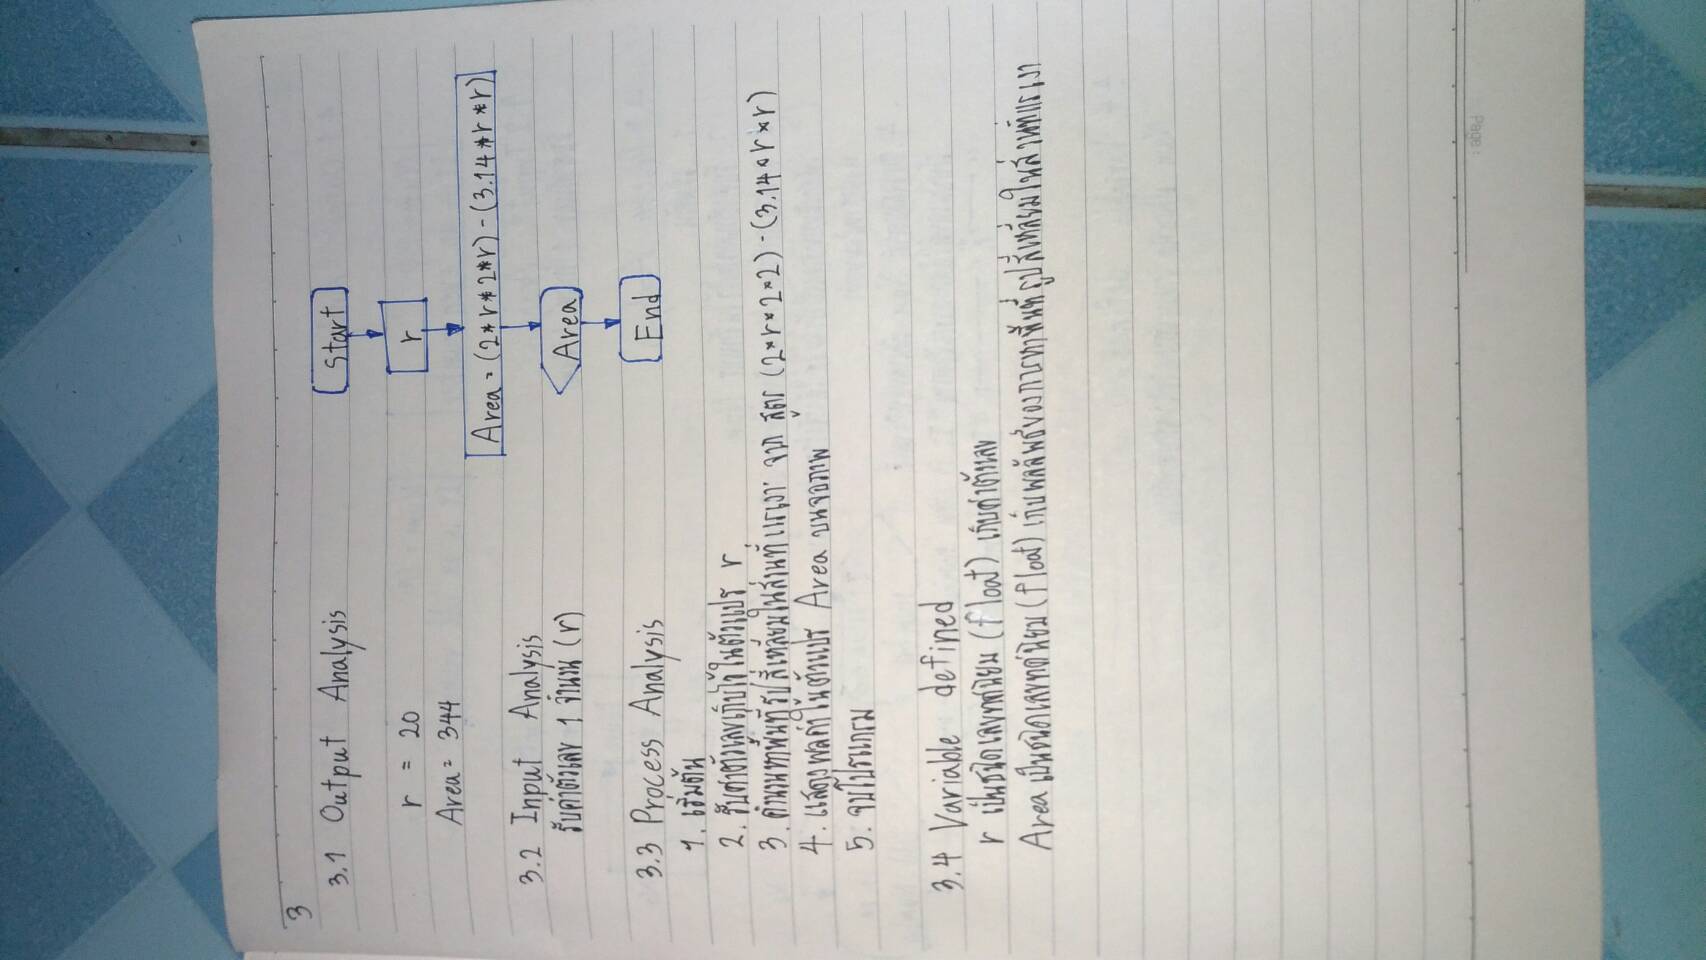 3
3.1 Output Analysis
r = 20
Area = 344
3.2 Input Analysis
รับค่าตัวเลข 1 จำนวน (r)
3.3 Process Analysis
1. เริ่มต้น
2. รับค่าตัวเลขเก็บไว้ในตัวแปร r
3. คำนวนหาพื้นที่รูปสี่เหลี่ยมในส่วนที่แรเงา จาก สูตร (2*r*2*2) - (3.14*r*r)
4. แสดงผลค่าในตัวแปร Area บนจอภาพ
5. จบโปรแกรม
3.4 Variable defined
r เป็นชนิดเลขทศนิยม (float) เก็บค่าตัวเลข
Area เป็นชนิดเลขทศนิยม (float) เก็บผลลัพธ์ของการหาพื้นที่รูปสี่เหลี่ยมในส่วนที่แรเงา
Start
r
Area = (2*r*2*r) - (3.14*r*r)
Area
End
Page :